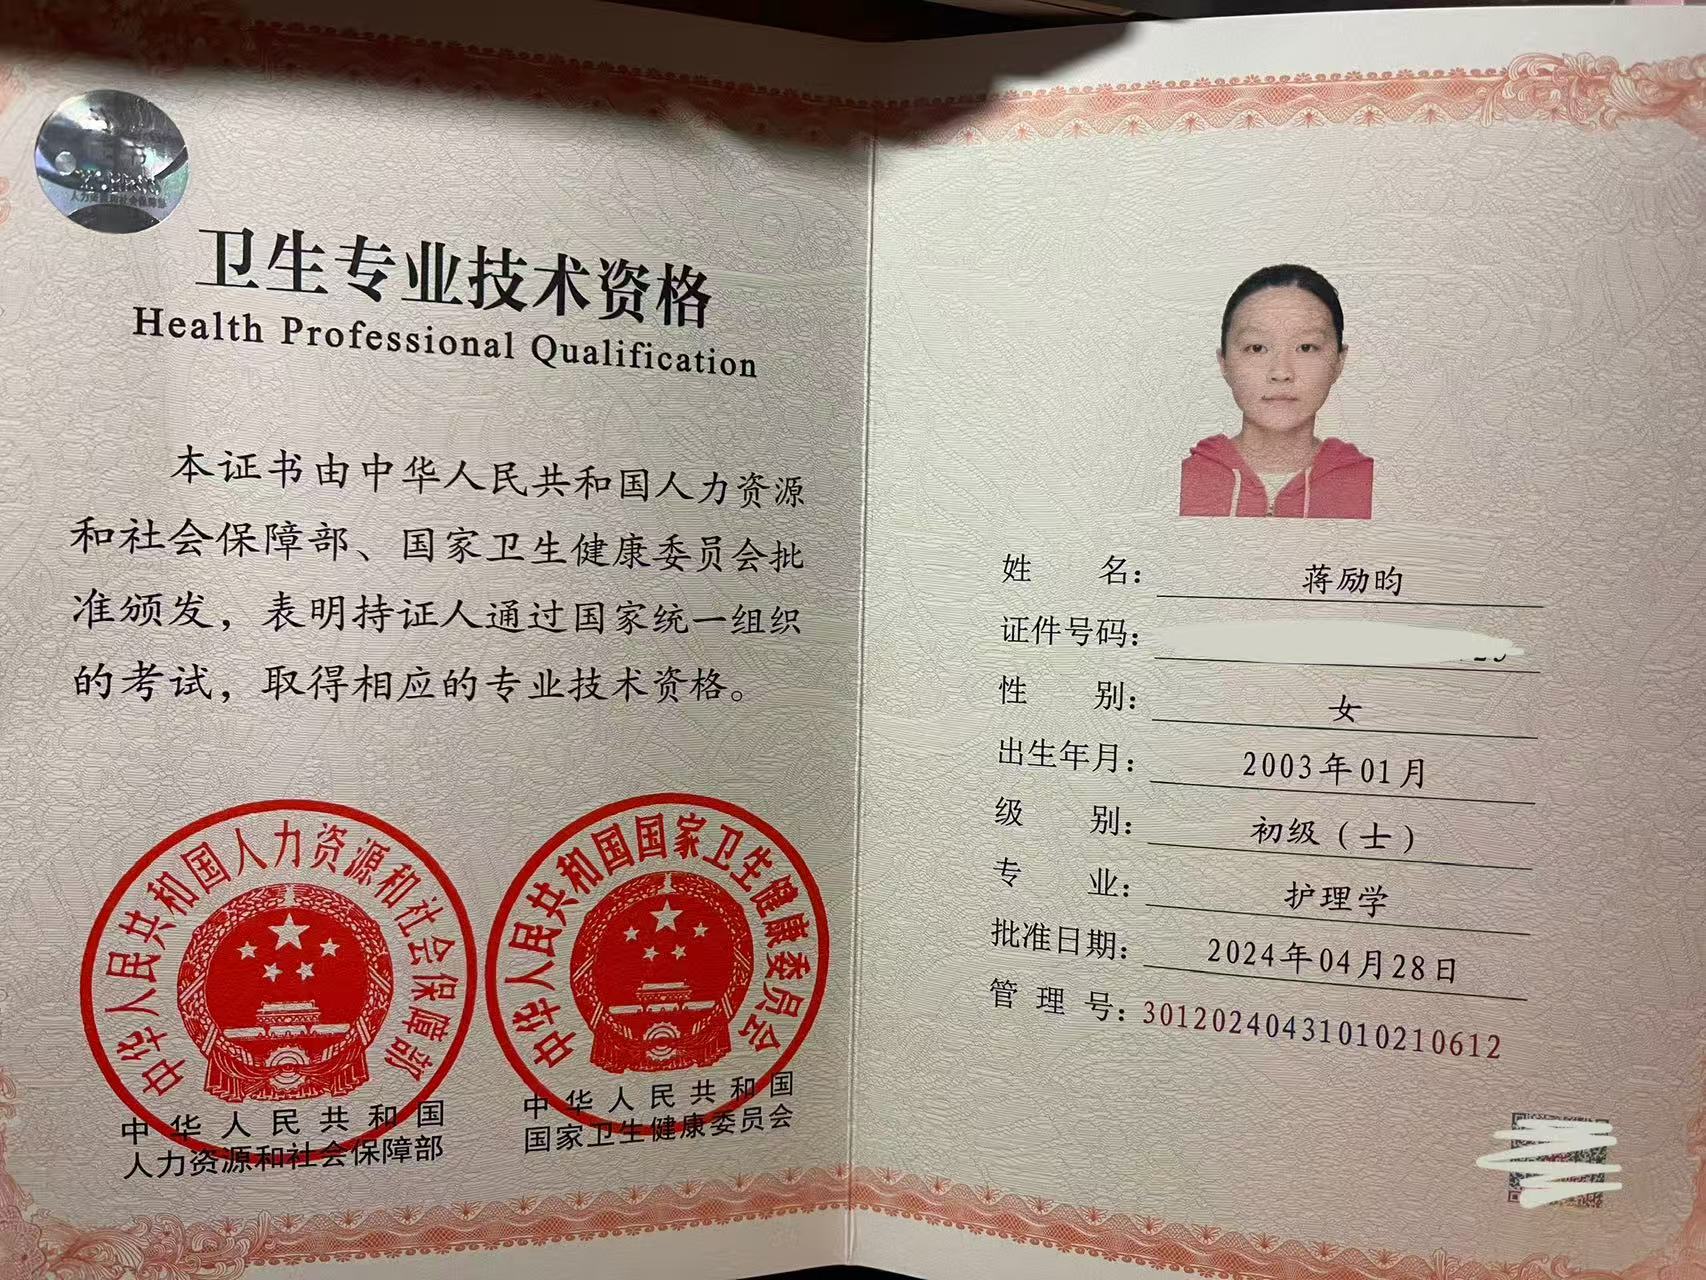 人力资源和社会保障部
卫生专业技术资格
Health Professional Qualification
本证书由中华人民共和国人力资源
和社会保障部、国家卫生健康委员会批
准颁发，表明持证人通过国家统一组织
的考试，取得相应的专业技术资格。
中华人民共和国人力资源和社会保障部
中华人民共和国国家卫生健康委员会
中华人民共和国
人力资源和社会保障部
中华人民共和国
国家卫生健康委员会
姓名：蒋励昀
证件号码：
性别：女
出生年月：2003年01月
级别：初级（士）
专业：护理学
批准日期：2024年04月28日
管理号：30120240431010210612